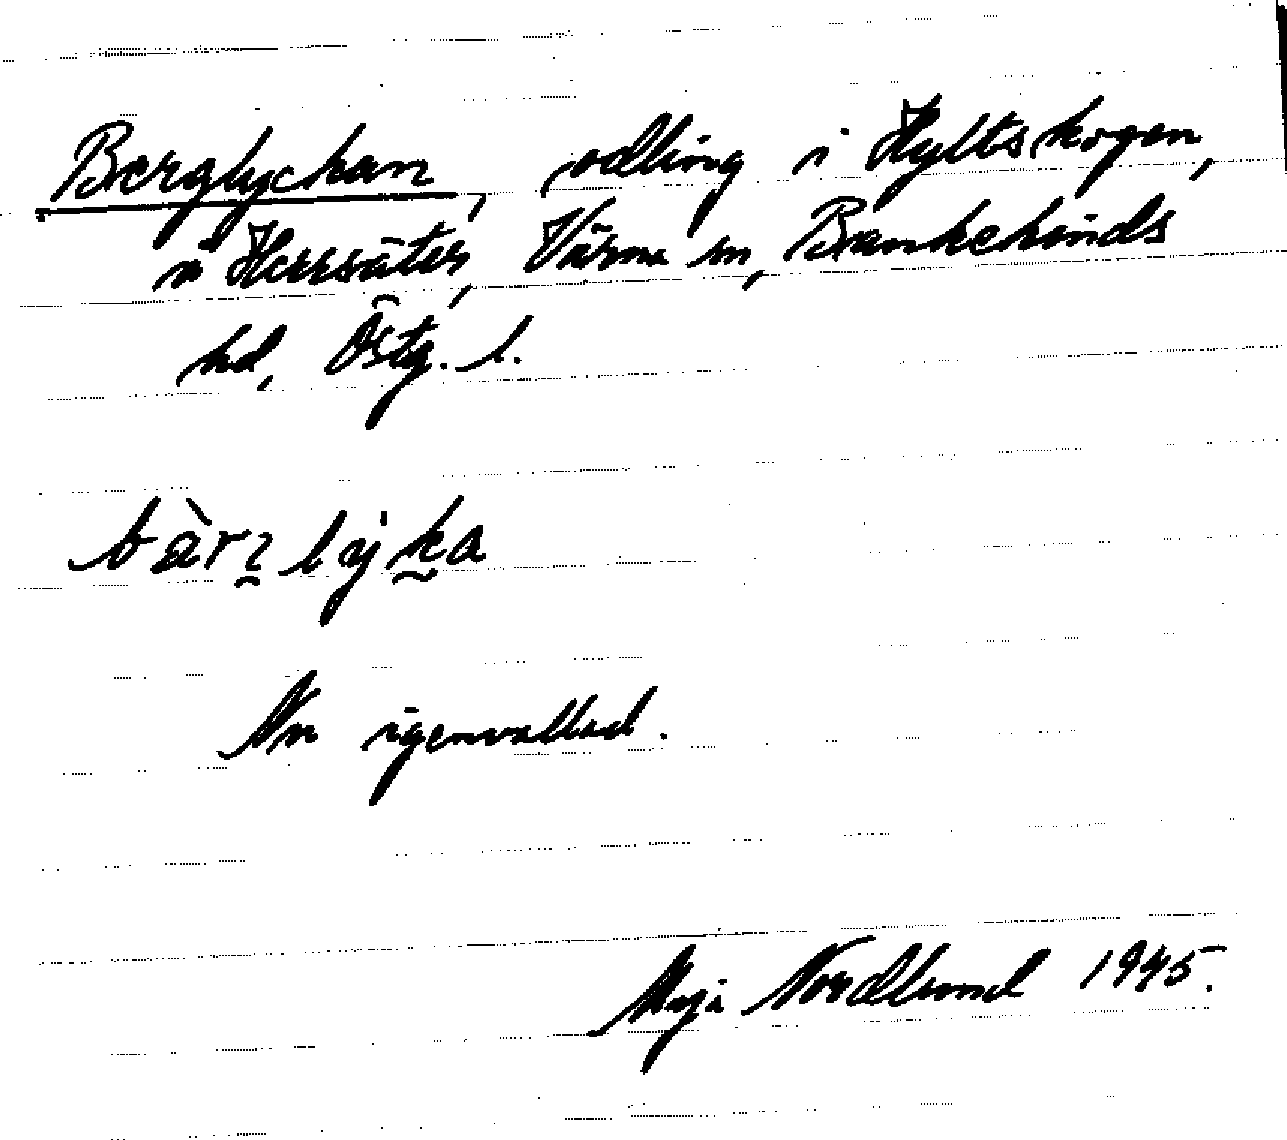 Berglyckan, odling i Hyltskogen,
å Herrsäter, Värna sn, Bankekinds
hd, Östg. l.
bàrɿlýka
Nu igenvallad.
Maja Nordlund 1945.